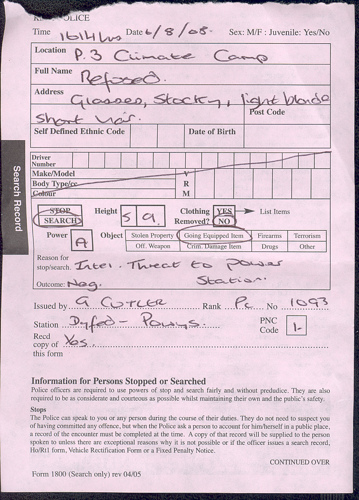 POLICE
Time 1614hrs Date 6/8/08. Sex: M/F : Juvenile: Yes/No
Location P.3 Climate Camp
Full Name Refused.
Address Glasses, Stocky, light blonde
Post Code
short hair.
Self Defined Ethnic Code Date of Birth
Driver Number
Make/Model V
Body Type/cc R
Colour M
STOP SEARCH Height 5 9 Clothing Removed? YES NO List Items
Power A Object Stolen Property Going Equipped Item Firearms Terrorism
Off. Weapon Crim. Damage Item Drugs Other
Reason for stop/search. Intel. Threat to power
Station.
Outcome: Neg.
Issued by G CUTLER Rank Pc No 1093
Station Dyfed-Powys PNC Code 1-
Recd copy of this form Yes
Search Record
Information for Persons Stopped or Searched
Police officers are required to use powers of stop and search fairly and without predudice. They are also
required to be as considerate and courteous as possible whilst maintaining their own and the public's safety.
Stops
The Police can speak to you or any person during the course of their duties. They do not need to suspect you
of having committed any offence, but when the Police ask a person to account for him/herself in a public place,
a record of the encounter must be completed at the time. A copy of that record will be supplied to the person
spoken to unless there are exceptional reasons why it is not possible or if the officer issues a search record,
Ho/Rt1 form, Vehicle Rectification Form or a Fixed Penalty Notice.
CONTINUED OVER
Form 1800 (Search only) rev 04/05